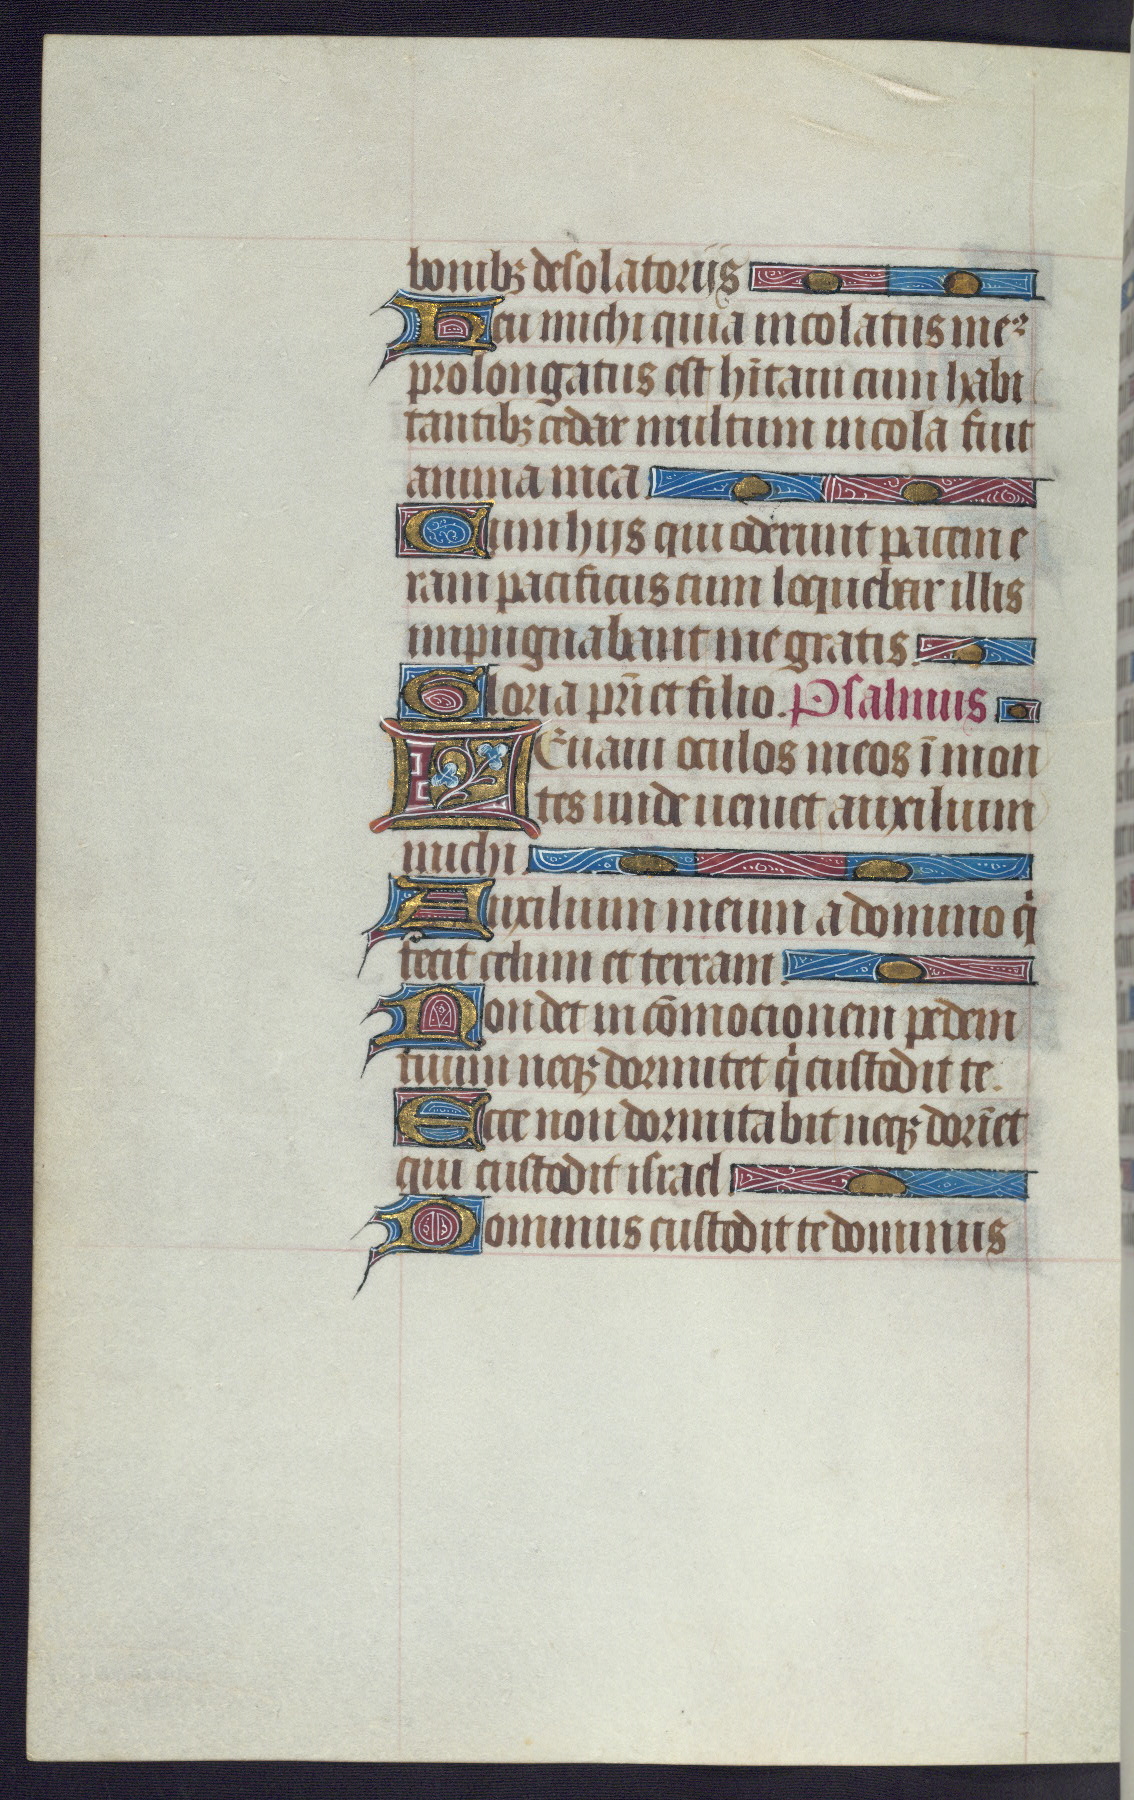 bonibꝫ desolatoriis
Heu michi quia incolatus meꝰ
prolongatus est hītaui cum habi
tantibꝫ cedar multum incola fuit
anima mea
Cum hiis qui oderunt pacem e
ram pacificus cum loquebar illis
impugnabant me gratis.
Gloria pr̄i et filio. Psalmus
LEuaui oculos meos ī mon
tes unde ueniet auxilium
michi.
Auxilium meum a domino qⁱ
fecit celum et terram
Non det in cōmocionem pedem
tuum neqꝫ dormitet qⁱ custodit te.
Ecce non dormitabit neqꝫ dorīet
qui custodit israel
Dominus custodit te dominus